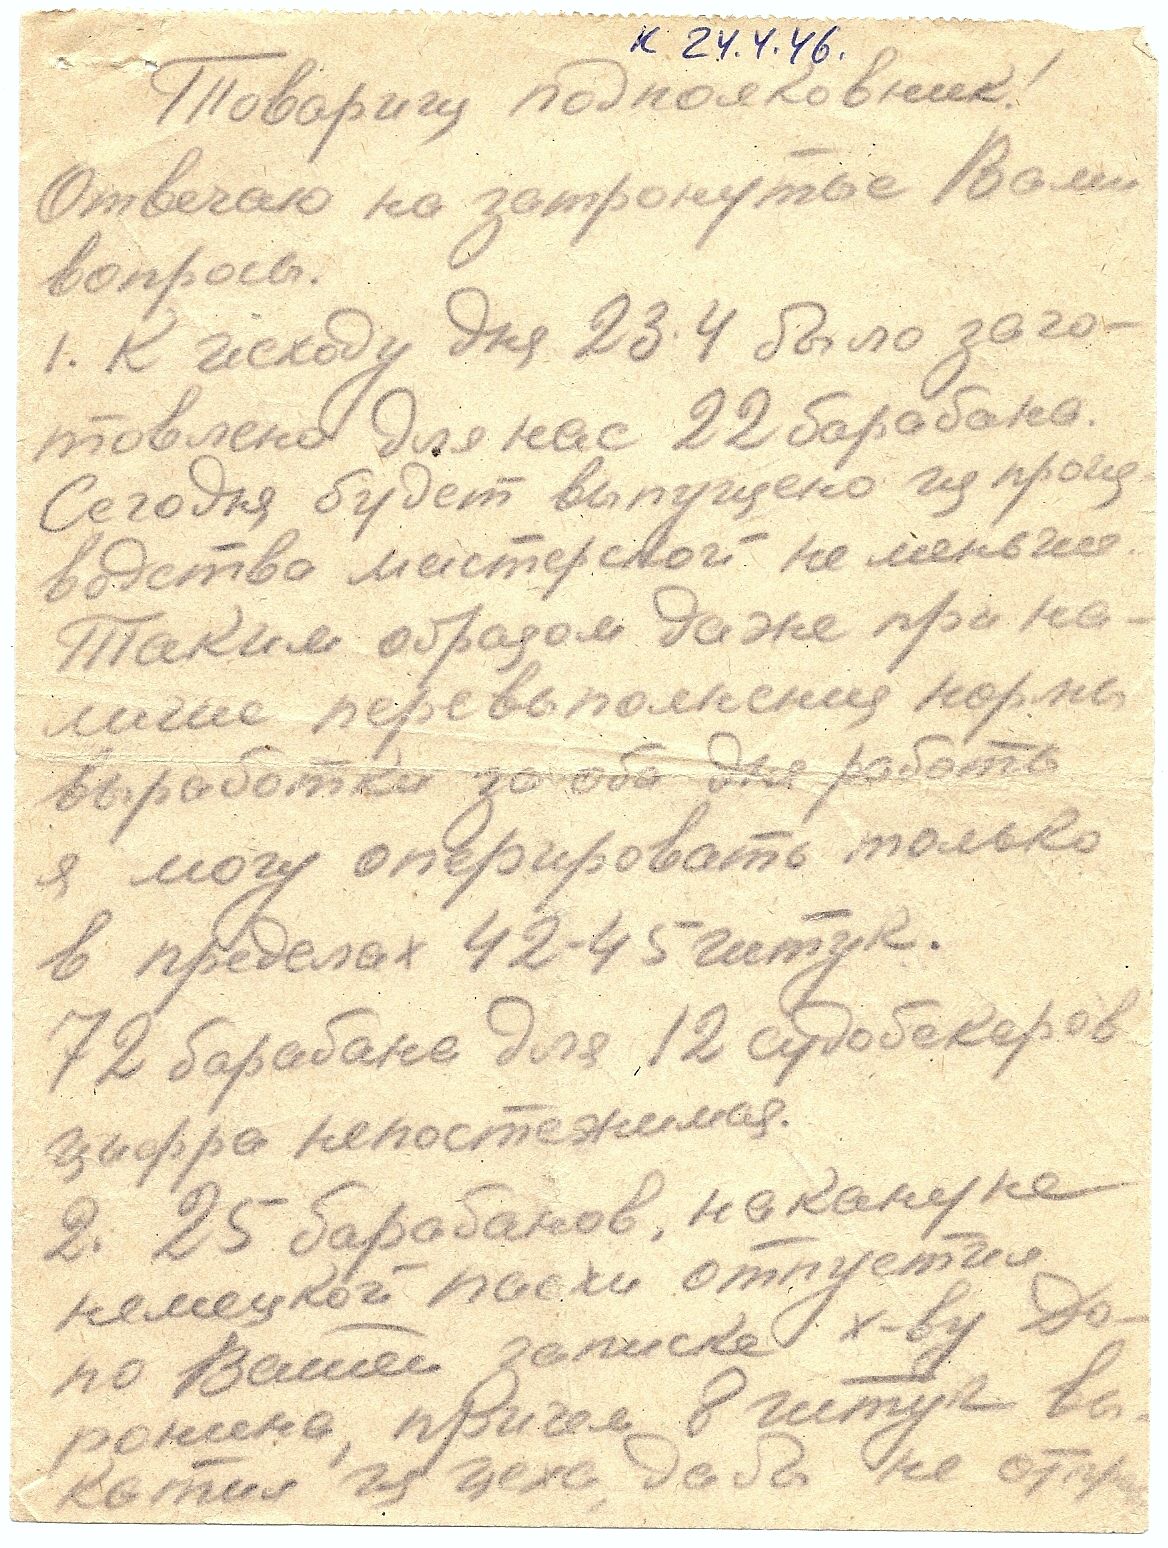 к 24.4.46.
Товарищ подполковник!
Отвечаю на затронутые Вами
вопросы.
1. К исходу дня 23.4 было заго-
товлено для нас 22 барабана.
Сегодня будет выпущено из произ-
водства мастерской не меньше.
Таким образом даже при на-
личие перевыполнения нормы
выработки за оба дня работы
я могу оперировать только
в пределах 42-45 штук.
72 барабана для 12 студобекеров
цифра непостежимая.
2. 25 барабанов, накануне
немецкой пасхи отпустил
по Вашей записке х-ву До-
ронина, причем 8 штук вы-
катил из цеха, дабы не отпр